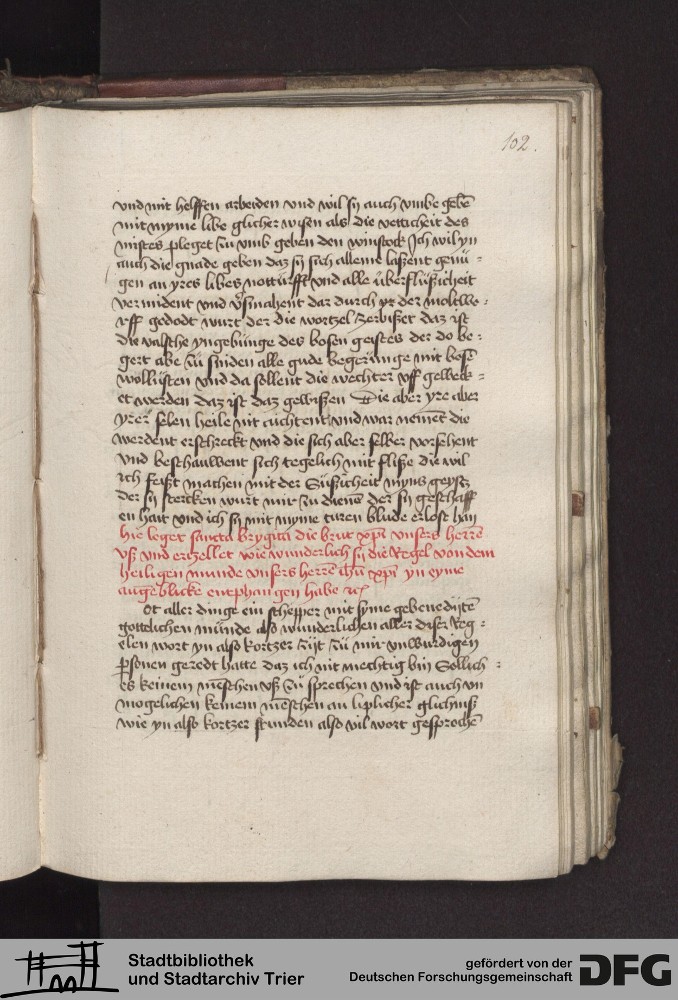 102.
vnd mit helffen arbeiden vnd wil sij auch vmbe gebē
mit myme libe glicher wisen als die vetticheit des
mistes pleget zu vmb geben den winstock Ich wil yn
auch die gnade geben daz sij sich alleine laszent genu⸗
gen an yres libes notturfft vnd alle uberfluszicheit
vermident vnd v̄smahent dar durch yr der moltwe⸗
rff gedodt wurt der die wortzel zerbiszet daz ist
die valsche yngebunge des bosen geistes der do be⸗
gert abe zu sniden alle gude begerunge mit bosē
wollusten vnd da sollent die wechter vff geweck⸗
et werden daz ist daz gewiszen Die aber yre aber
yrer selen heile nit achtent vnd war nement die
werdent erschreckt vnd die sich aber selber vorsehent
vnd beschauwent sich tegelich mit flisze die wil
ich feiszt machen mit der suszicheit myns geystz
der sij stercken wurt mir zu dienē der sij geschaff
en hait vnd ich sij mit myme turen blude erlost han
hie leget sancta brygitta die brut xpi vnsers herrē
vsz vnd ertzellet wie wunderlich sij die Regel von dem
heiligen munde vnsers herrē ihū xpi yn eyme
augēblicke entphangen habe ꝛc
Ot aller dinge ein schepper mit syme gebenedijtē
gottelichen munde also wunderlichen aller diser Reg⸗
elen wort yn also kortzer zijt zu mir vnwurdigen
ꝑsonen geredt hatte daz ich nit mechtig bin Sollich⸗
es keinem mēschen vsz zu sprechen vnd ist auch vn
mogelichen keinem mēschen an liplicher glichnisz
wie yn also kortzer stunden also vil wort gesprochē
Stadtbibliothek
und Stadtarchiv Trier
gefördert von der
Deutschen Forschungsgemeinschaft
DFG